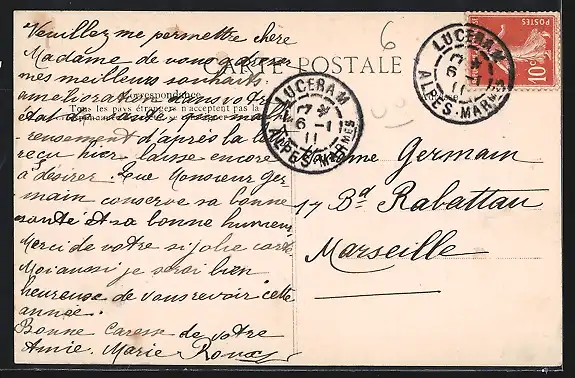 Veuillez me permettre chère
Madame de vous adresser
mes meilleurs souhaits
amélioration dans votre
état de santé que malheu
reusement d'après la
reçu hier laisse encore
à désirer. Que Monsieur Ger
main conserve sa bonne
santé et sa bonne humeur
Merci de votre si jolie carte
Moi aussi je serai bien
heureuse de vous revoir cette
année.
Bonne Caresse de votre
Amie. Marie Roux
CARTE POSTALE
Correspondance
Tous les pays étrangers n'acceptent pas la
6
LUCERAM
6-1
11
ALPES-MARMES
LUCERAM
6-1
11
ALPES-MARMES
POSTES
10c
Madame Germain
17 Bd Rabattau
Marseille